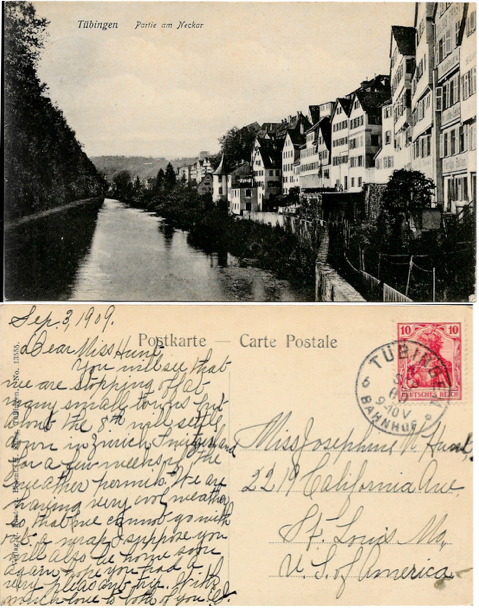 Tübingen Partie am Neckar
Sep. 3, 1909.
Postkarte — Carte Postale
Dear Miss Hunt,
You will see that
we are stopping of at
many small towns but
the 8th will settle
down in Zurich Switzerland
for a few weeks if the
weather permits. We are
having very cool weather
so that we cannot go with
out a wrap. Suppose you
will also be home soon
again, hope you had a
very pleasant trip. With
much love to both of you. E.
10 10
DEUTSCHES REICH
TÜBINGEN
9-10V
BAHNHOF
Miss Josephine M. Hunt,
2219 California Ave.
St. Louis Mo,
U. S. of America